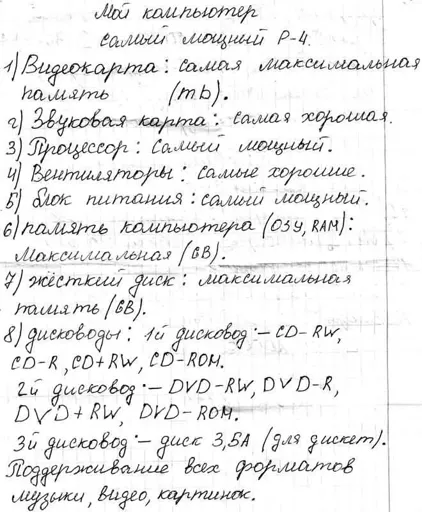 Мой компьютер
самый мощный P-4.
1) Видеокарта: самая максимальная
память (mb).
2) Звуковая карта: самая хорошая.
3) Процессор: самый мощный.
4) Вентиляторы: самые хорошие.
5) Блок питания: самый мощный.
6) память компьютера (ОЗУ, RAM):
максимальная (GB).
7) жёсткий диск: максимальная
память (GB).
8) дисководы: 1й дисковод:- CD-RW,
CD-R, CD+RW, CD-ROM.
2й дисковод:- DVD-RW, DVD-R,
DVD+RW, DVD-ROM.
3й дисковод:- диск 3,5A (для дискет).
Поддерживание всех форматов
музыки, видео, картинок.